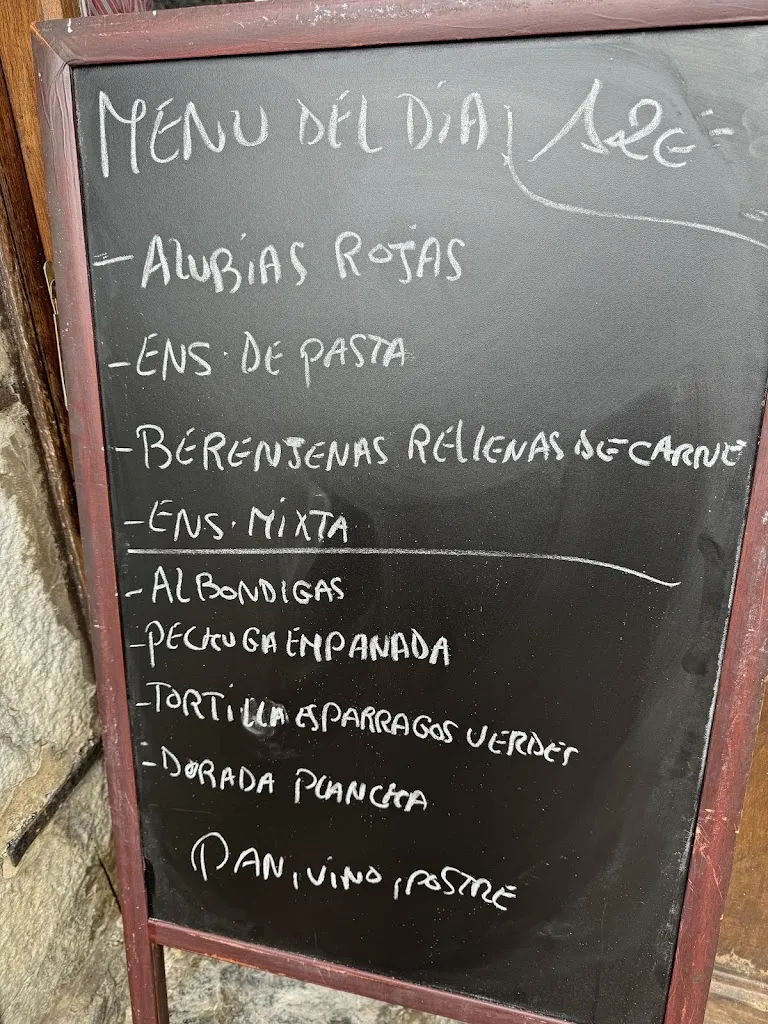 MENU DEL DÍA 12€
- ALUBIAS ROJAS
- ENS. DE PASTA
- BERENJENAS RELLENAS DE CARNE
- ENS. MIXTA
- ALBONDIGAS
- PECHUGA EMPANADA
- TORTILLA ESPARRAGOS VERDES
- DORADA PLANCHA
PAN, VINO, POSTRE